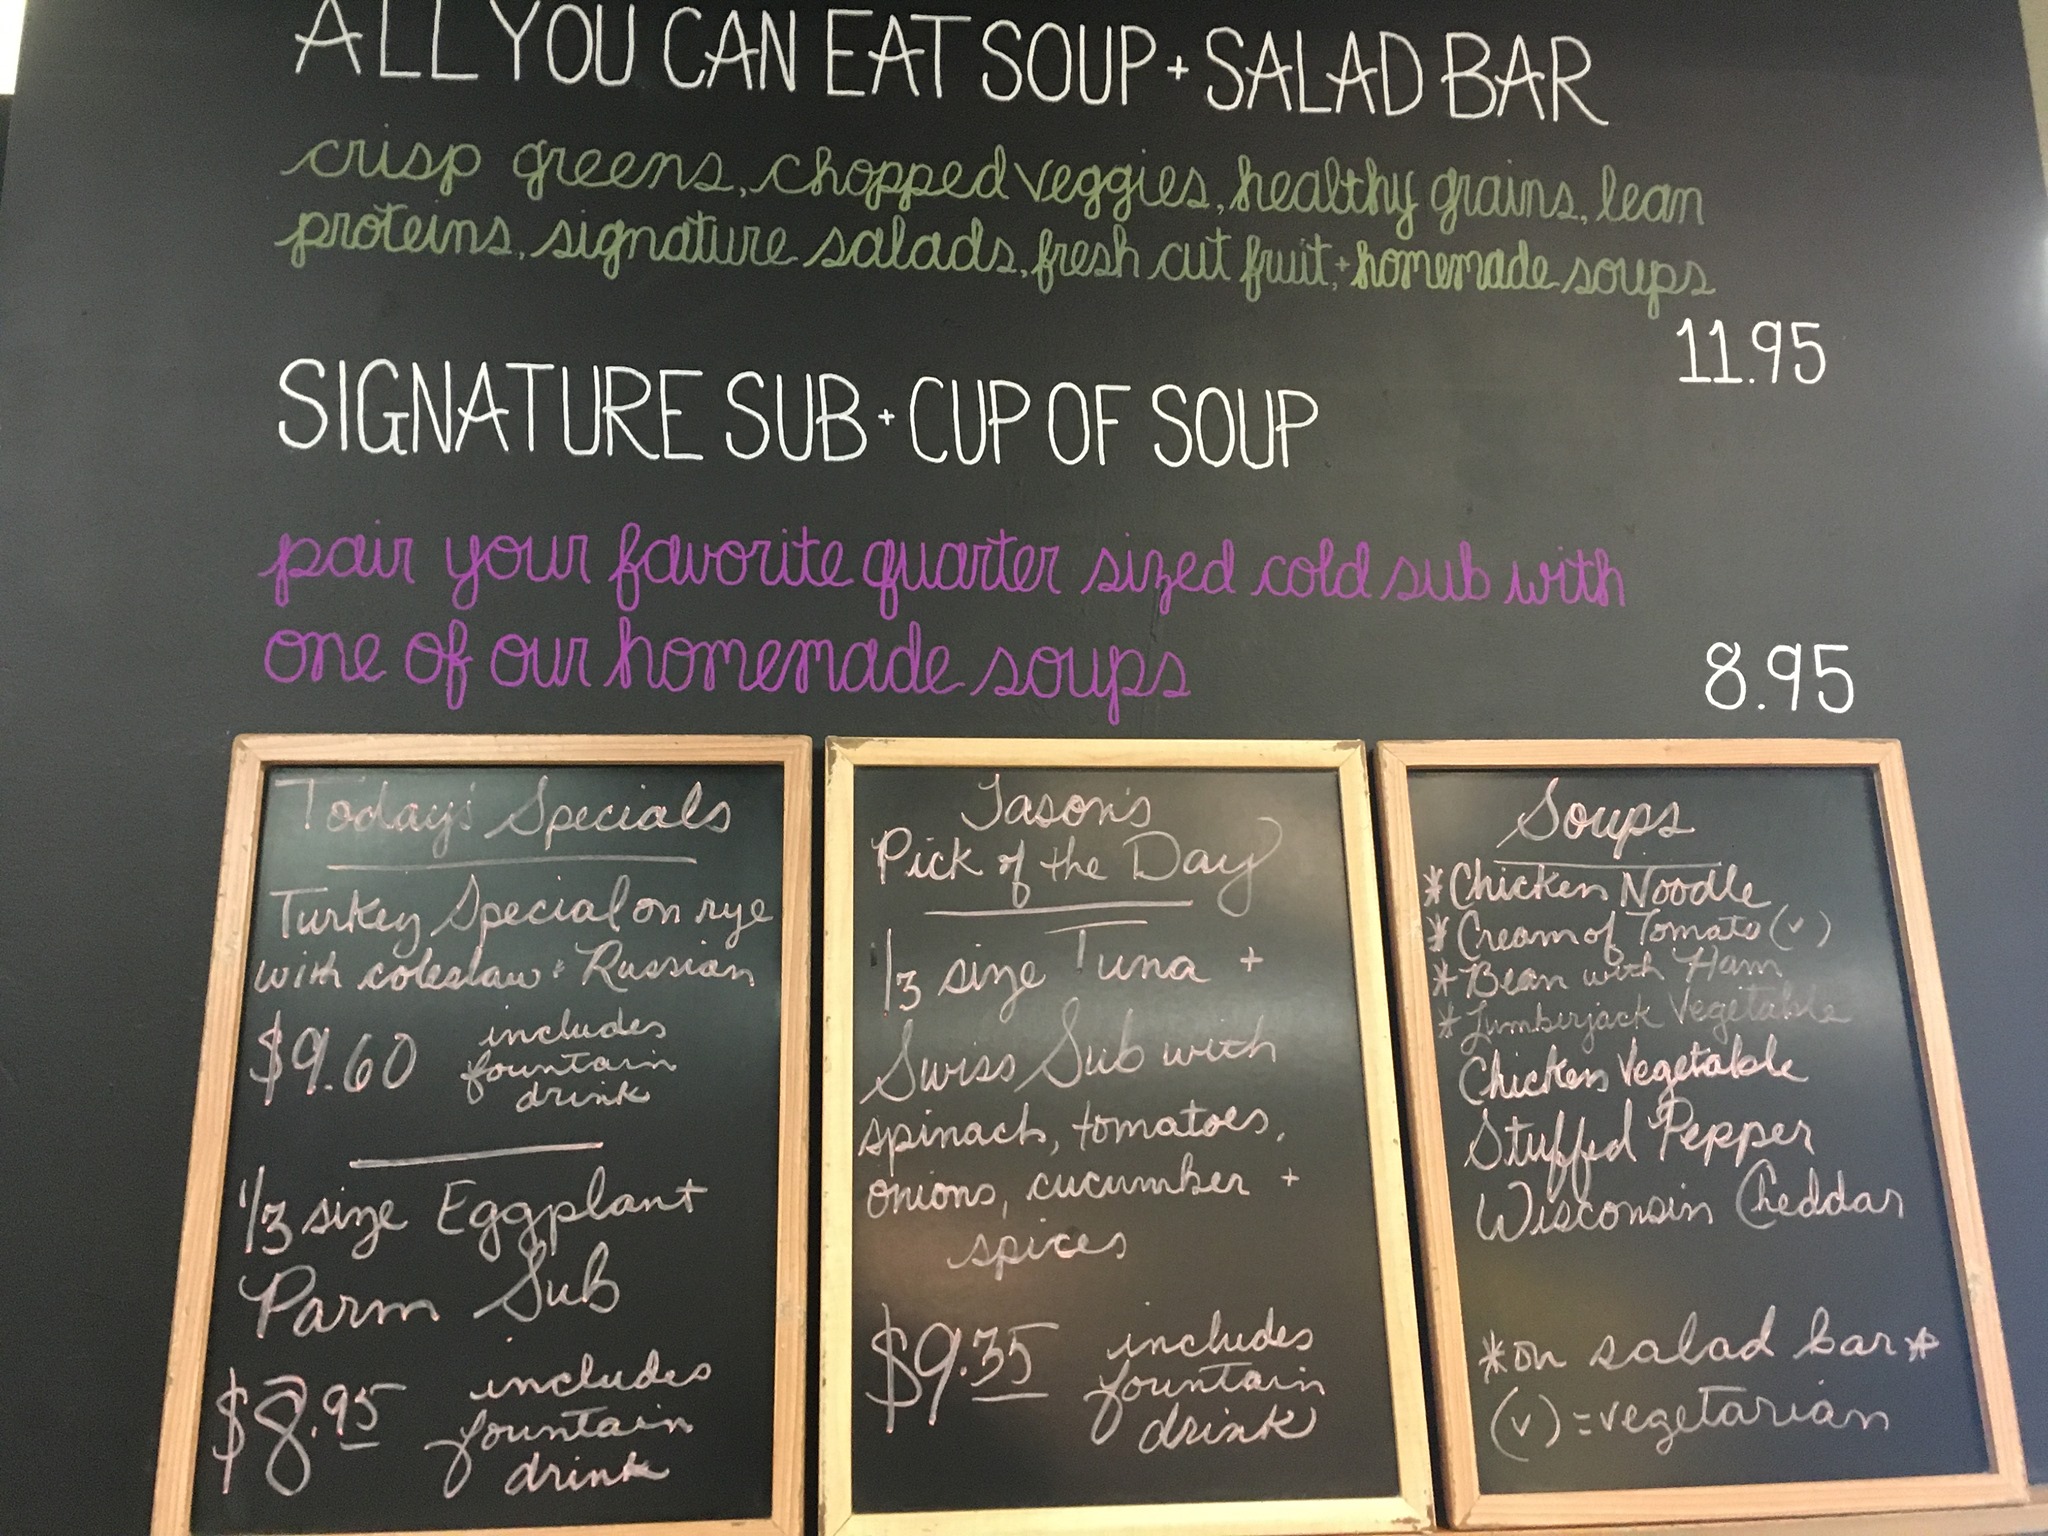 ALL YOU CAN EAT SOUP + SALAD BAR
crisp greens, chopped veggies, healthy grains, lean
proteins, signature salads, fresh cut fruit, + homemade soups
11.95
SIGNATURE SUB + CUP OF SOUP
pair your favorite quarter sized cold sub with
one of our homemade soups
8.95
Today's Specials
Turkey Special on rye
with coleslaw + Russian
$9.60 includes
fountain
drink
1/3 size Eggplant
Parm Sub
$8.95 includes
fountain
drink
Jason's
Pick of the Day
1/3 size Tuna +
Swiss Sub with
spinach, tomatoes,
onions, cucumber +
spices
$9.35 includes
fountain
drink
Soups
*Chicken Noodle
*Cream of Tomato (v)
*Bean with Ham
*Lumberjack Vegetable
Chicken Vegetable
Stuffed Pepper
Wisconsin Cheddar
*on salad bar*
(v) = vegetarian